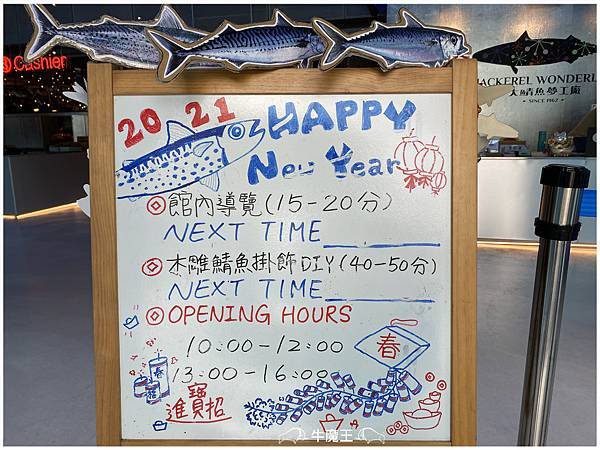 Cashier
MACKEREL WONDERL
大鯖魚夢工廠
SINCE 1962
2021 HAPPY
New Year
館內導覽(15-20分)
NEXT TIME
木雕鯖魚掛飾DIY(40-50分)
NEXT TIME
OPENING HOURS
10:00-12:00
13:00-16:00
春
春
招財進寶
牛魔王